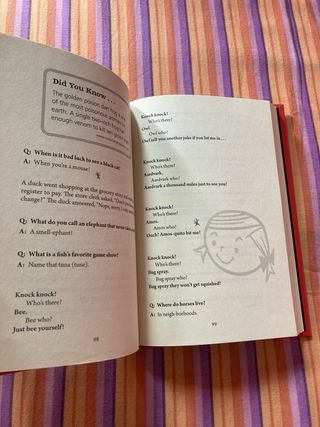 Did You Know . . .
The golden poison dart frog is one
of the most poisonous animals on
earth. A single two-inch frog has
enough venom to kill ten grown
Q: When is it bad luck to see a black cat?
A: When you're a mouse!
A duck went shopping at the grocery store
register to pay. The store clerk asked, "Don't you have
change?" The duck answered, "Nope, sorry, I only
Q: What do you call an elephant that never takes
A: A smell-ephant!
Q: What is a fish's favorite game show?
A: Name that tuna (tune).
Knock knock!
Who's there?
Bee.
Bee who?
Just bee yourself!
98
Knock knock!
Who's there?
Owl.
Owl who?
Owl tell you another joke if you let me in . . .
Knock knock!
Who's there?
Aardvark.
Aardvark who?
Aardvark a thousand miles just to see you!
Knock knock!
Who's there?
Amos.
Amos who?
Ouch! Amos-quito bit me!
Knock knock!
Who's there?
Bug spray.
Bug spray who?
Bug spray they won't get squished!
Q: Where do horses live?
A: In neigh-borhoods.
99